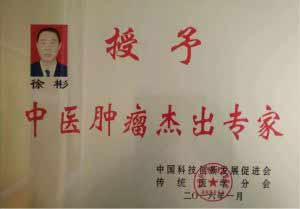 授予
徐彬
中医肿瘤杰出专家
中国科技创新发展促进会
传统医学分会
二〇一六年一月